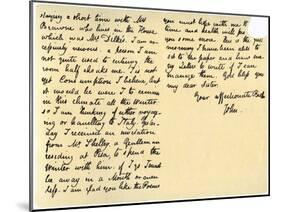 staying a short time with Mr
Brawne who lives in the House
which was Mr Dilke's. I am ex-
cessively nervous: a person I am
not quite used to entering the
room half chokes me. 'Tis not
yet Consumption I believe, but
it would be were I to remain
in this climate all the Winter:
so I am thinking of either voyag-
ing or travelling to Italy. Yester-
day I received an invitation
from Mr Shelley, a Gentleman
residing at Pisa, to spend the
Winter with him: if I go I must
be away in a Month or even
less. I am glad you like the Poems
you must hope with me that
time and health will produce
you some more. This is the first
morning I have been able to
sit to the paper and have ma-
ny Letters to write if I can
manage them. God bless you
my dear Sister.
Your affectionate Brother
John